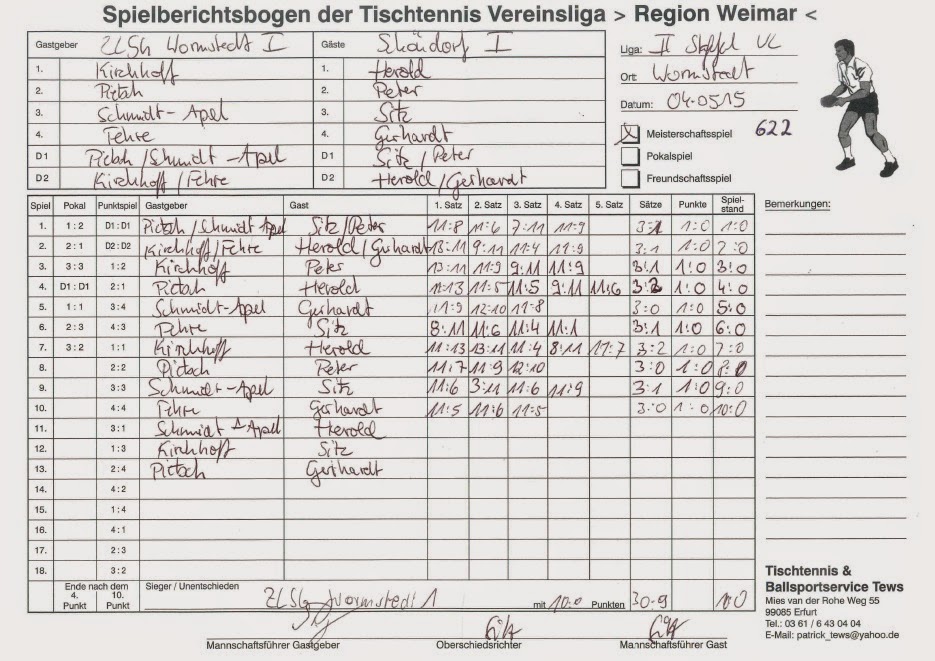 Spielberichtsbogen der Tischtennis Vereinsliga > Region Weimar <
Gastgeber ZLSG Wormstedt I Gäste Schöndorf I
Liga: II Staffel VL
1. Kirchhoff 1. Herold
Ort: Wormstedt
2. Pietsch 2. Peter
3. Schmidt-Apel 3. Sitz
Datum: 04.05.15
4. Fehre 4. Gerhardt
Meisterschaftsspiel 622
D1 Pietsch/Schmidt-Apel D1 Sitz/Peter
Pokalspiel
D2 Kirchhoff/Fehre D2 Herold/Gerhardt
Freundschaftsspiel
Spiel Pokal Punktspiel Gastgeber Gast 1. Satz 2. Satz 3. Satz 4. Satz 5. Satz Sätze Punkte Spielstand Bemerkungen:
1. 1:2 D1:D1 Pietsch/Schmidt Apel Sitz/Peter 11:8 11:6 7:11 11:9 3:1 1:0 1:0
2. 2:1 D2:D2 Kirchhoff/Fehre Herold/Gerhardt 13:11 9:11 11:4 11:9 3:1 1:0 2:0
3. 3:3 1:2 Kirchhoff Peter 13:11 11:9 9:11 11:9 3:1 1:0 3:0
4. D1:D1 2:1 Pietsch Herold 11:13 11:5 11:5 9:11 11:6 3:2 1:0 4:0
5. 1:1 3:4 Schmidt-Apel Gerhardt 11:9 12:10 11:8 3:0 1:0 5:0
6. 2:3 4:3 Fehre Sitz 8:11 11:6 11:4 11:1 3:1 1:0 6:0
7. 3:2 1:1 Kirchhoff Herold 11:13 13:11 11:4 8:11 11:7 3:2 1:0 7:0
8. 2:2 Pietsch Peter 11:7 11:9 12:10 3:0 1:0 8:0
9. 3:3 Schmidt-Apel Sitz 11:6 3:11 11:6 11:9 3:1 1:0 9:0
10. 4:4 Fehre Gerhardt 11:5 11:6 11:5 3:0 1:0 10:0
11. 3:1 Schmidt-Apel Herold
12. 1:3 Kirchhoff Sitz
13. 2:4 Pietsch Gerhardt
14. 4:2
15. 1:4
16. 4:1
17. 2:3
18. 3:2
Ende nach dem 4. Punkt 10. Punkt Sieger / Unentschieden ZLSG Wormstedt 1 mit 10:0 Punkten 30:9 10:0
Mannschaftsführer Gastgeber Oberschiedsrichter Mannschaftsführer Gast
Tischtennis &
Ballsportservice Tews
Mies van der Rohe Weg 55
99085 Erfurt
Tel.: 03 61 / 6 43 04 04
E-Mail: patrick_tews@yahoo.de